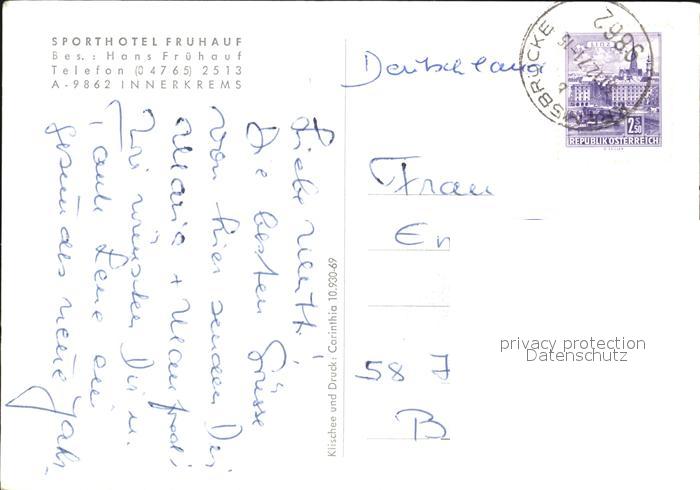 SPORTHOTEL FRÜHAUF
Bes.: Hans Frühauf
Telefon (0 4765) 2513
A-9862 INNERKREMS
Liebe Mutti,
Die besten Grüsse
von hier senden Dir
Maria + Manfred
Wir wünschen Dir u.
Tante Lene ein
gesundes neue Jahr.
Klischee und Druck: Carinthia 10.930-69
Deutschland
Frau
58
B
9862
LINZ
2.50
REPUBLIK ÖSTERREICH
privacy protection
Datenschutz